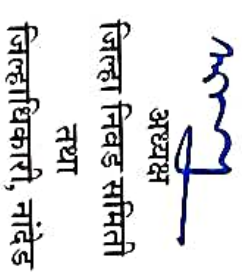 अध्यक्ष
जिल्हा निवड समिती
तथा
जिल्हाधिकारी, नांदेड